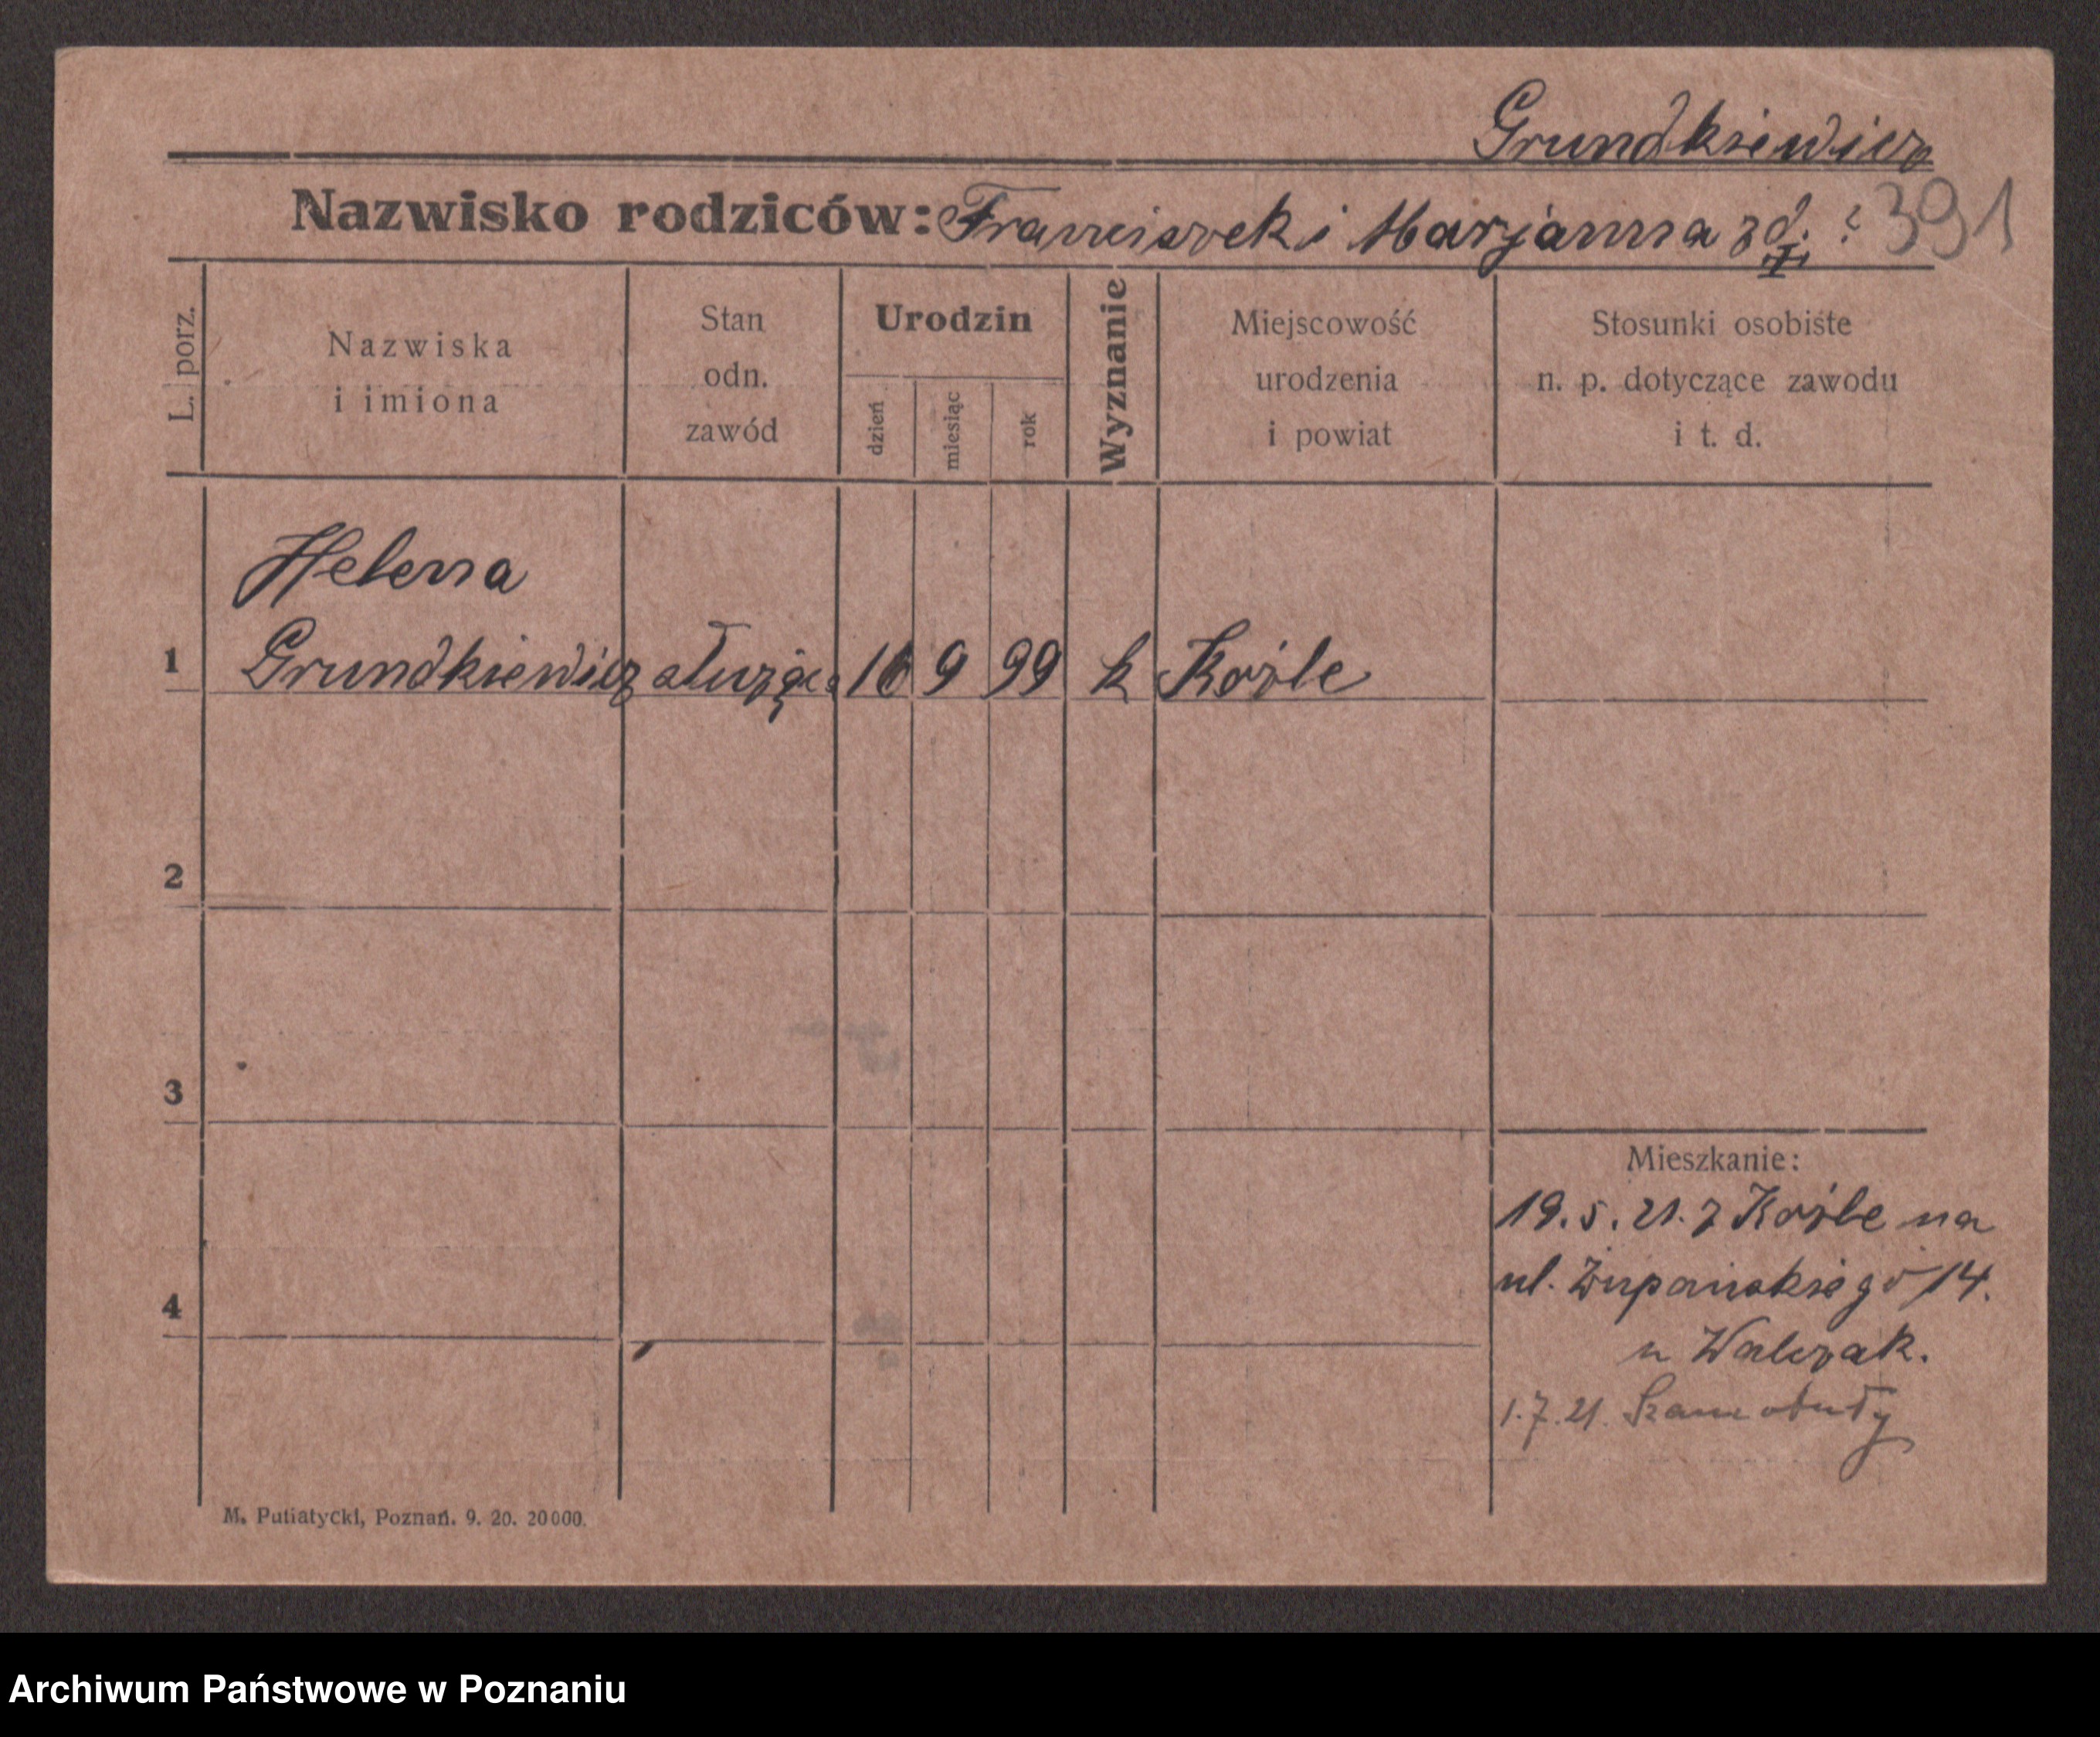 Grundkiewicz
Nazwisko rodziców: Franciszek i Marjanna zd. ? 391
L. porz.
Nazwiska
i imiona
Stan
odn.
zawód
Urodzin
dzień
miesiąc
rok
Wyznanie
Miejscowość
urodzenia
i powiat
Stosunki osobiste
n. p. dotyczące zawodu
i t. d.
Helena
1 Grundkiewicz służąca 16 9 99 k Koźle
2
3
Mieszkanie:
19.5.21. z Koźle na
ul. Żupańskiego 14.
4
u Walczak.
1.7.21. Szamotuły
M. Putiatycki, Poznań. 9. 20. 20000.
Archiwum Państwowe w Poznaniu